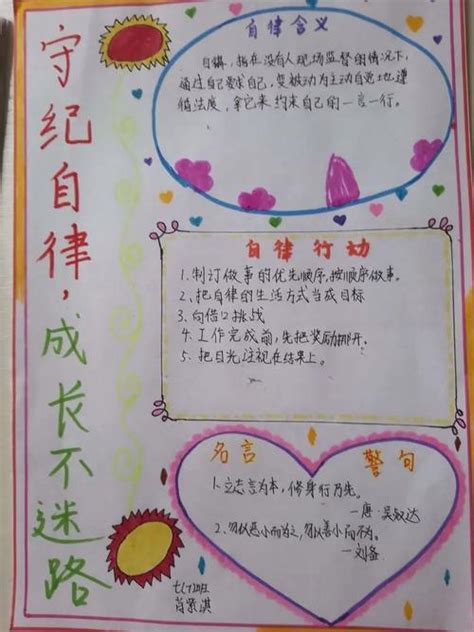 守纪自律，成长不迷路
自律含义
自律，指在没有人现场监督的情况下，
通过自己要求自己，变被动为主动自觉地遵
循法度，拿它来约束自己的一言一行。
自律行动
1.制订做事的优先顺序，按顺序做事。
2、把自律的生活方式当成目标
3.向借口挑战
4.工作完成前，先把奖励挪开。
5.把目光注视在结果上。
名言 警句
1.立志言为本，修身行乃先。
—唐·吴叔达
2、勿以恶小而为之，勿以善小而不为。
—刘备
七(7)班
肖紫淇